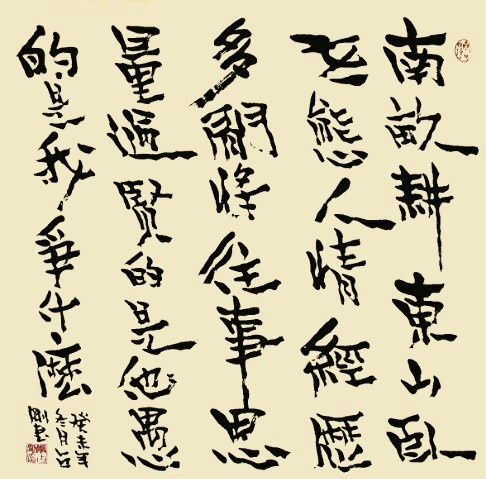 南畝耕東山臥
世態人情經歷
多閑將往事思
量過賢的是他愚
的是我爭什麼
癸未年
冬月呂
剛書